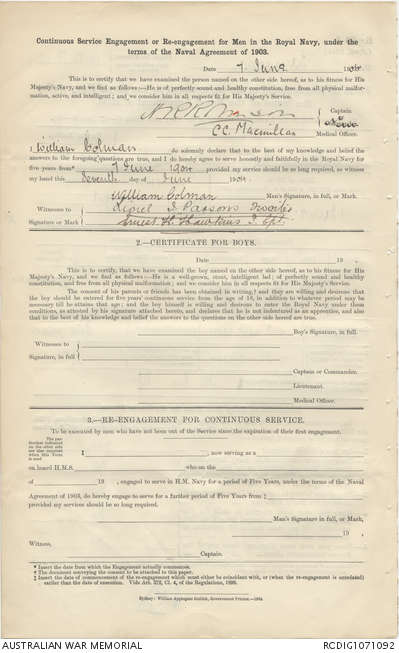 Continuous Service Engagement or Re-engagement for Men in the Royal Navy, under the
terms of the Naval Agreement of 1903.
Date 7 June 1904
This is to certify that we have examined the person named on the other side hereof, as to his fitness for His
Majesty's Navy, and we find as follows:—He is of perfectly sound and healthy constitution, free from all physical malfor-
mation, active, and intelligent; and we consider him in all respects fit for His Majesty's Service.
Captain
C.C. Macmillan
Medical Officer.
I William Colman do solemnly declare that to the best of my knowledge and belief the
answers to the foregoing questions are true, and I do hereby agree to serve honestly and faithfully in the Royal Navy for
five years from* 7 June 1904 provided my service should be so long required, as witness
my hand this Seventh day of June 1904.
William Colman Man's Signature, in full, or Mark.
Witnesses to
Signature or Mark
Lionel I Parsons
Ernest H Hawkins
2.—CERTIFICATE FOR BOYS.
Date 19 .
This is to certify, that we have examined the boy named on the other side hereof, as to his fitness for His
Majesty's Navy, and we find as follows:—He is a well-grown, stout, intelligent lad; of perfectly sound and healthy
constitution, and free from all physical malformation; and we consider him in all respects fit for His Majesty's Service.
The consent of his parents or friends has been obtained in writing,† and they are willing and desirous that
the boy should be entered for five years' continuous service from the age of 18, in addition to whatever period may be
necessary till he attains that age; and the boy himself is willing and desirous to enter the Royal Navy under these
conditions, as attested by his signature attached hereto, and declares that he is not indentured as an apprentice, and also
that to the best of his knowledge and belief the answers to the questions on the other side hereof are true.
Boy's Signature, in full.
Witnesses to
Signature in full
Captain or Commander.
Lieutenant.
Medical Officer.
3.—RE-ENGAGEMENT FOR CONTINUOUS SERVICE.
To be executed by men who have not been out of the Service since the expiration of their first engagement.
I , now serving as a
on board H.M.S. who on the
of 19 , engaged to serve in H.M. Navy for a period of Five Years, under the terms of the Naval
Agreement of 1903, do hereby engage to serve for a further period of Five Years from ‡
provided my services should be so long required.
Man's Signature, in full, or Mark,
19 .
Witness,
Captain.
* Insert the date from which the Engagement actually commences.
† The document conveying the consent to be attached to this paper.
‡ Insert date of commencement of the re-engagement which must either be coincident with, or (when the re-engagement is antedated)
earlier than the date of execution. Vide Art. 372, Cl. 4, of the Regulations, 1899.
Sydney: William Applegate Gullick, Government Printer.—1904.
AUSTRALIAN WAR MEMORIAL
RCDIG1071092